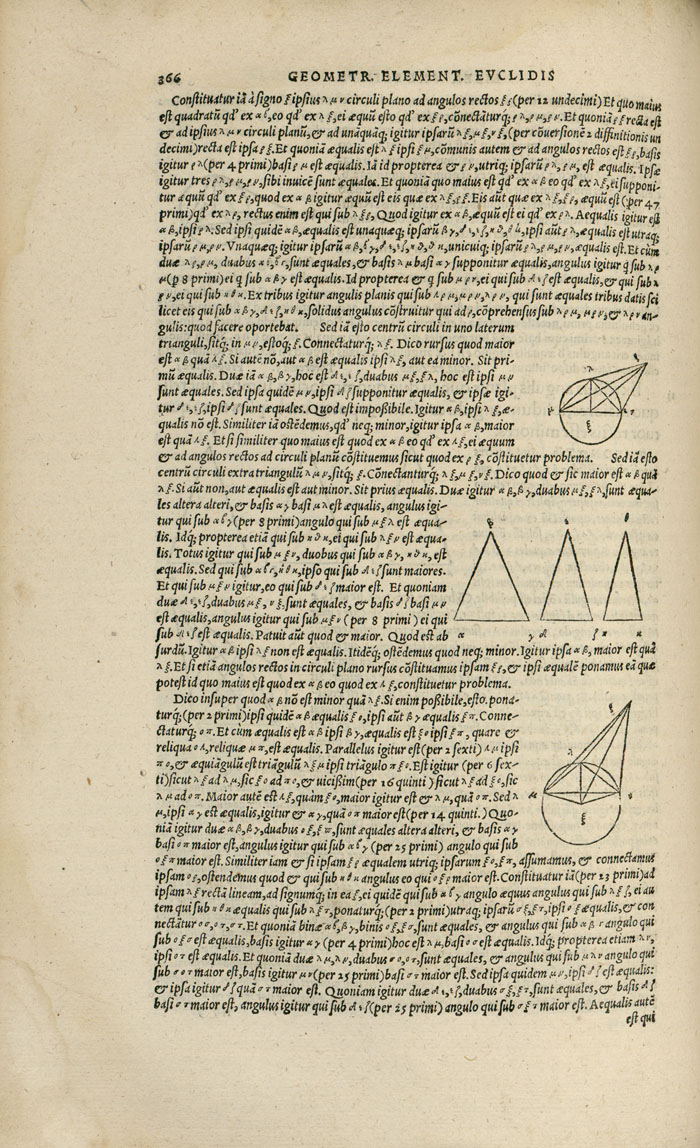 366 GEOMETR. ELEMENT. EVCLIDIS
Constituatur iā à signo ξ ipsius λ μ ν circuli plano ad angulos rectos ξ ρ (per 12 undecimi) Et quo maius
est quadratū qd' ex α β, eo qd' ex λ ξ, ei æquū esto qd' ex ξ ρ, cōnectāturq; ρ λ, ρ μ, ρ ν. Et quoniā ρ ξ recta est
& ad ipsius λ μ ν circuli planū, & ad unāquāq; igitur ipsarū λ ξ, μ ξ, ν ξ, (per cōuersionē 2 diffinitionis un
decimi) recta est ipsa ρ ξ. Et quoniā æqualis est λ ξ ipsi ξ μ, cōmunis autem & ad angulos rectos est ξ ρ, basis
igitur ρ λ (per 4 primi) basi ρ μ est æqualis. Iā id propterea & ρ ν, utriq; ipsarū ρ λ, ρ μ, est æqualis. Ipsæ
igitur tres ρ λ, ρ μ, ρ ν, sibi inuicē sunt æquales. Et quoniam quo maius est qd' ex α β eo qd' ex λ ξ, ei supponi-
tur æquū qd' ex ξ ρ, quod ex α β igitur æquū est eis quæ ex λ ξ, ρ ξ. Eis aūt quæ ex λ ξ, ξ ρ, æquū est (per 47
primi) qd' ex λ ρ, rectus enim est qui sub λ ξ ρ, Quod igitur ex α β, æquū est ei qd' ex ρ λ. Aequalis igitur est
α β, ipsi ρ λ. Sed ipsi quidē α β, æqualis est unaquæq; ipsarū β γ, δ ε, ε ζ, η θ, θ κ, ipsi aūt ρ λ, æqualis est utraq;
ipsarū ρ μ, ρ ν. Vnaquæq; igitur ipsarū α β, β γ, δ ε, ε ζ, η θ, θ κ, unicuiq; ipsarū ρ λ, ρ μ, ρ ν, æqualis est. Et cum
duæ λ ρ, ρ μ, duabus α β, β γ, sunt æquales, & basis λ μ basi α γ supponitur æqualis, angulus igitur q̄ sub λ ρ
μ (p̄ 8 primi) ei q̄ sub α β γ est æqualis. Id propterea & q̄ sub μ ρ ν, ei qui sub δ ε ζ est æqualis, & qui sub λ
ρ ν, ei qui sub η θ κ. Ex tribus igitur angulis planis qui sub λ ρ μ, μ ρ ν, λ ρ ν, qui sunt æquales tribus datis sci
licet eis qui sub α β γ, δ ε ζ, η θ κ, solidus angulus cōstruitur qui ad ρ, cōprehensus sub λ ρ μ, μ ρ ν, & λ ρ ν an-
gulis: quod facere oportebat. Sed iā esto centrū circuli in uno laterum
trianguli, sitq; in μ ν, estoq; ξ. Connectaturq; λ ξ. Dico rursus quod maior
est α β quā λ ξ. Si autē nō, aut α β est æqualis ipsi λ ξ, aut ea minor. Sit pri-
mū æqualis. Duæ iā α β, β γ, hoc est δ ε, ε ζ, duabus μ ξ, ξ λ, hoc est ipsi μ ν
sunt æquales. Sed ipsa quidē μ ν, ipsi δ ζ supponitur æqualis, & ipsæ igi-
tur δ ε, ε ζ, ipsi δ ζ sunt æquales. Quod est impoßibile. Igitur α β, ipsi λ ξ, æ-
qualis nō est. Similiter iā ostēdemus, qd' neq; minor, igitur ipsa α β, maior
est quā λ ξ. Et si similiter quo maius est quod ex α β eo qd' ex λ ξ, ei æquum
& ad angulos rectos ad circuli planū cōstituemus sicut quod ex ρ ξ, cōstituetur problema. Sed iā esto
centrū circuli extra triangulū λ μ ν, sitq; ξ. Cōnectanturq; λ ξ, μ ξ, ν ξ. Dico quod & sic maior est α β quā
λ ξ. Si aūt non, aut æqualis est aut minor. Sit prius æqualis. Duæ igitur α β, β γ, duabus μ ξ, ξ λ, sunt æqua-
les altera alteri, & basis α γ basi μ λ est æqualis, angulus igi-
tur qui sub α β γ (per 8 primi) angulo qui sub μ ξ λ est æqua-
lis. Idq; propterea etiā qui sub η θ κ, ei qui sub λ ξ ν est æqua-
lis. Totus igitur qui sub μ ξ ν, duobus qui sub α β γ, η θ κ, est
æqualis. Sed qui sub α β γ, η θ κ, ipso qui sub δ ε ζ sunt maiores.
Et qui sub μ ξ ν igitur, eo qui sub δ ε ζ maior est. Et quoniam
duæ δ ε, ε ζ, duabus μ ξ, ν ξ, sunt æquales, & basis δ ζ basi μ ν
est æqualis, angulus igitur qui sub μ ξ ν (per 8 primi) ei qui
sub δ ε ζ est æqualis. Patuit aūt quod & maior. Quod est ab
surdū. Igitur α β ipsi λ ξ non est æqualis. Itidēq; ostēdemus quod neq; minor. Igitur ipsa α β, maior est quā
λ ξ. Et si etiā angulos rectos in circuli plano rursus cōstituamus ipsam ξ ρ, & ipsi æqualē ponamus eā quæ
potest id quo maius est quod ex α β eo quod ex λ ξ, constituetur problema.
Dico insuper quod α β nō est minor quā λ ξ. Si enim poßibile, esto. pona-
turq; (per 2 primi) ipsi quidē α β æqualis ξ ο, ipsi aūt β γ æqualis ξ π. Conne-
ctaturq; ο π. Et cum æqualis est α β ipsi β γ, æqualis est ξ ο ipsi ξ π, quare &
reliqua ο λ, reliquæ μ π, est æqualis. Parallelus igitur est (per 2 sexti) λ μ ipsi
π ο, & æquiāgulū est triāgulū λ ξ μ ipsi triāgulo π ξ ο. Est igitur (per 6 sex-
ti) sicut λ ξ ad λ μ, sic ξ ο ad π ο, & uicißim (per 16 quinti) sicut λ ξ ad ξ ο, sic
λ μ ad ο π. Maior autē est λ ξ, quàm ξ ο, maior igitur est & λ μ, quā ο π. Sed λ
μ, ipsi α γ est æqualis, igitur & α γ, quā ο π maior est (per 14 quinti.) Quo-
niā igitur duæ α β, β γ, duabus ο ξ, ξ π, sunt æquales altera alteri, & basis α γ
basi ο π maior est, angulus igitur qui sub α β γ (per 25 primi) angulo qui sub
ο ξ π maior est. Similiter iam & si ipsam ξ ρ æqualem utriq; ipsarum ξ ο, ξ π, assumamus, & connectamus
ipsam ο ρ, ostendemus quod & qui sub η θ κ angulus eo qui ο ξ ρ maior est. Constituatur iā (per 23 primi) ad
ipsam λ ξ rectā lineam, ad signumq; in ea ξ, ei quidē qui sub α β γ angulo æquus angulus qui sub λ ξ ς, ei au
tem qui sub η θ κ æqualis qui sub λ ξ τ, ponaturq; (per 2 primi) utraq; ipsarū ς ξ, ξ τ, ipsi ο ξ æqualis, & con
nectātur ο ς, ο τ, ς τ. Et quoniā binæ α β, β γ, binis ο ξ, ξ ς, sunt æquales, & angulus qui sub α β γ angulo qui
sub ο ξ ς est æqualis, basis igitur α γ (per 4 primi) hoc est λ μ, basi ο ς est æqualis. Idq; propterea etiam λ ν,
ipsi ο τ est æqualis. Et quoniā duæ λ μ, λ ν, duabus ς ο, ο τ, sunt æquales, & angulus qui sub μ λ ν angulo qui
sub ς ο τ maior est, basis igitur μ ν (per 25 primi) basi ς τ maior est. Sed ipsa quidem μ ν, ipsi δ ζ est æqualis:
& ipsa igitur δ ζ quā ς τ maior est. Quoniam igitur duæ δ ε, ε ζ, duabus ς ξ, ξ τ, sunt æquales, & basis δ ζ
basi ς τ maior est, angulus igitur qui sub δ ε ζ (per 25 primi) angulo qui sub ς ξ τ maior est. Aequalis autē
est qui